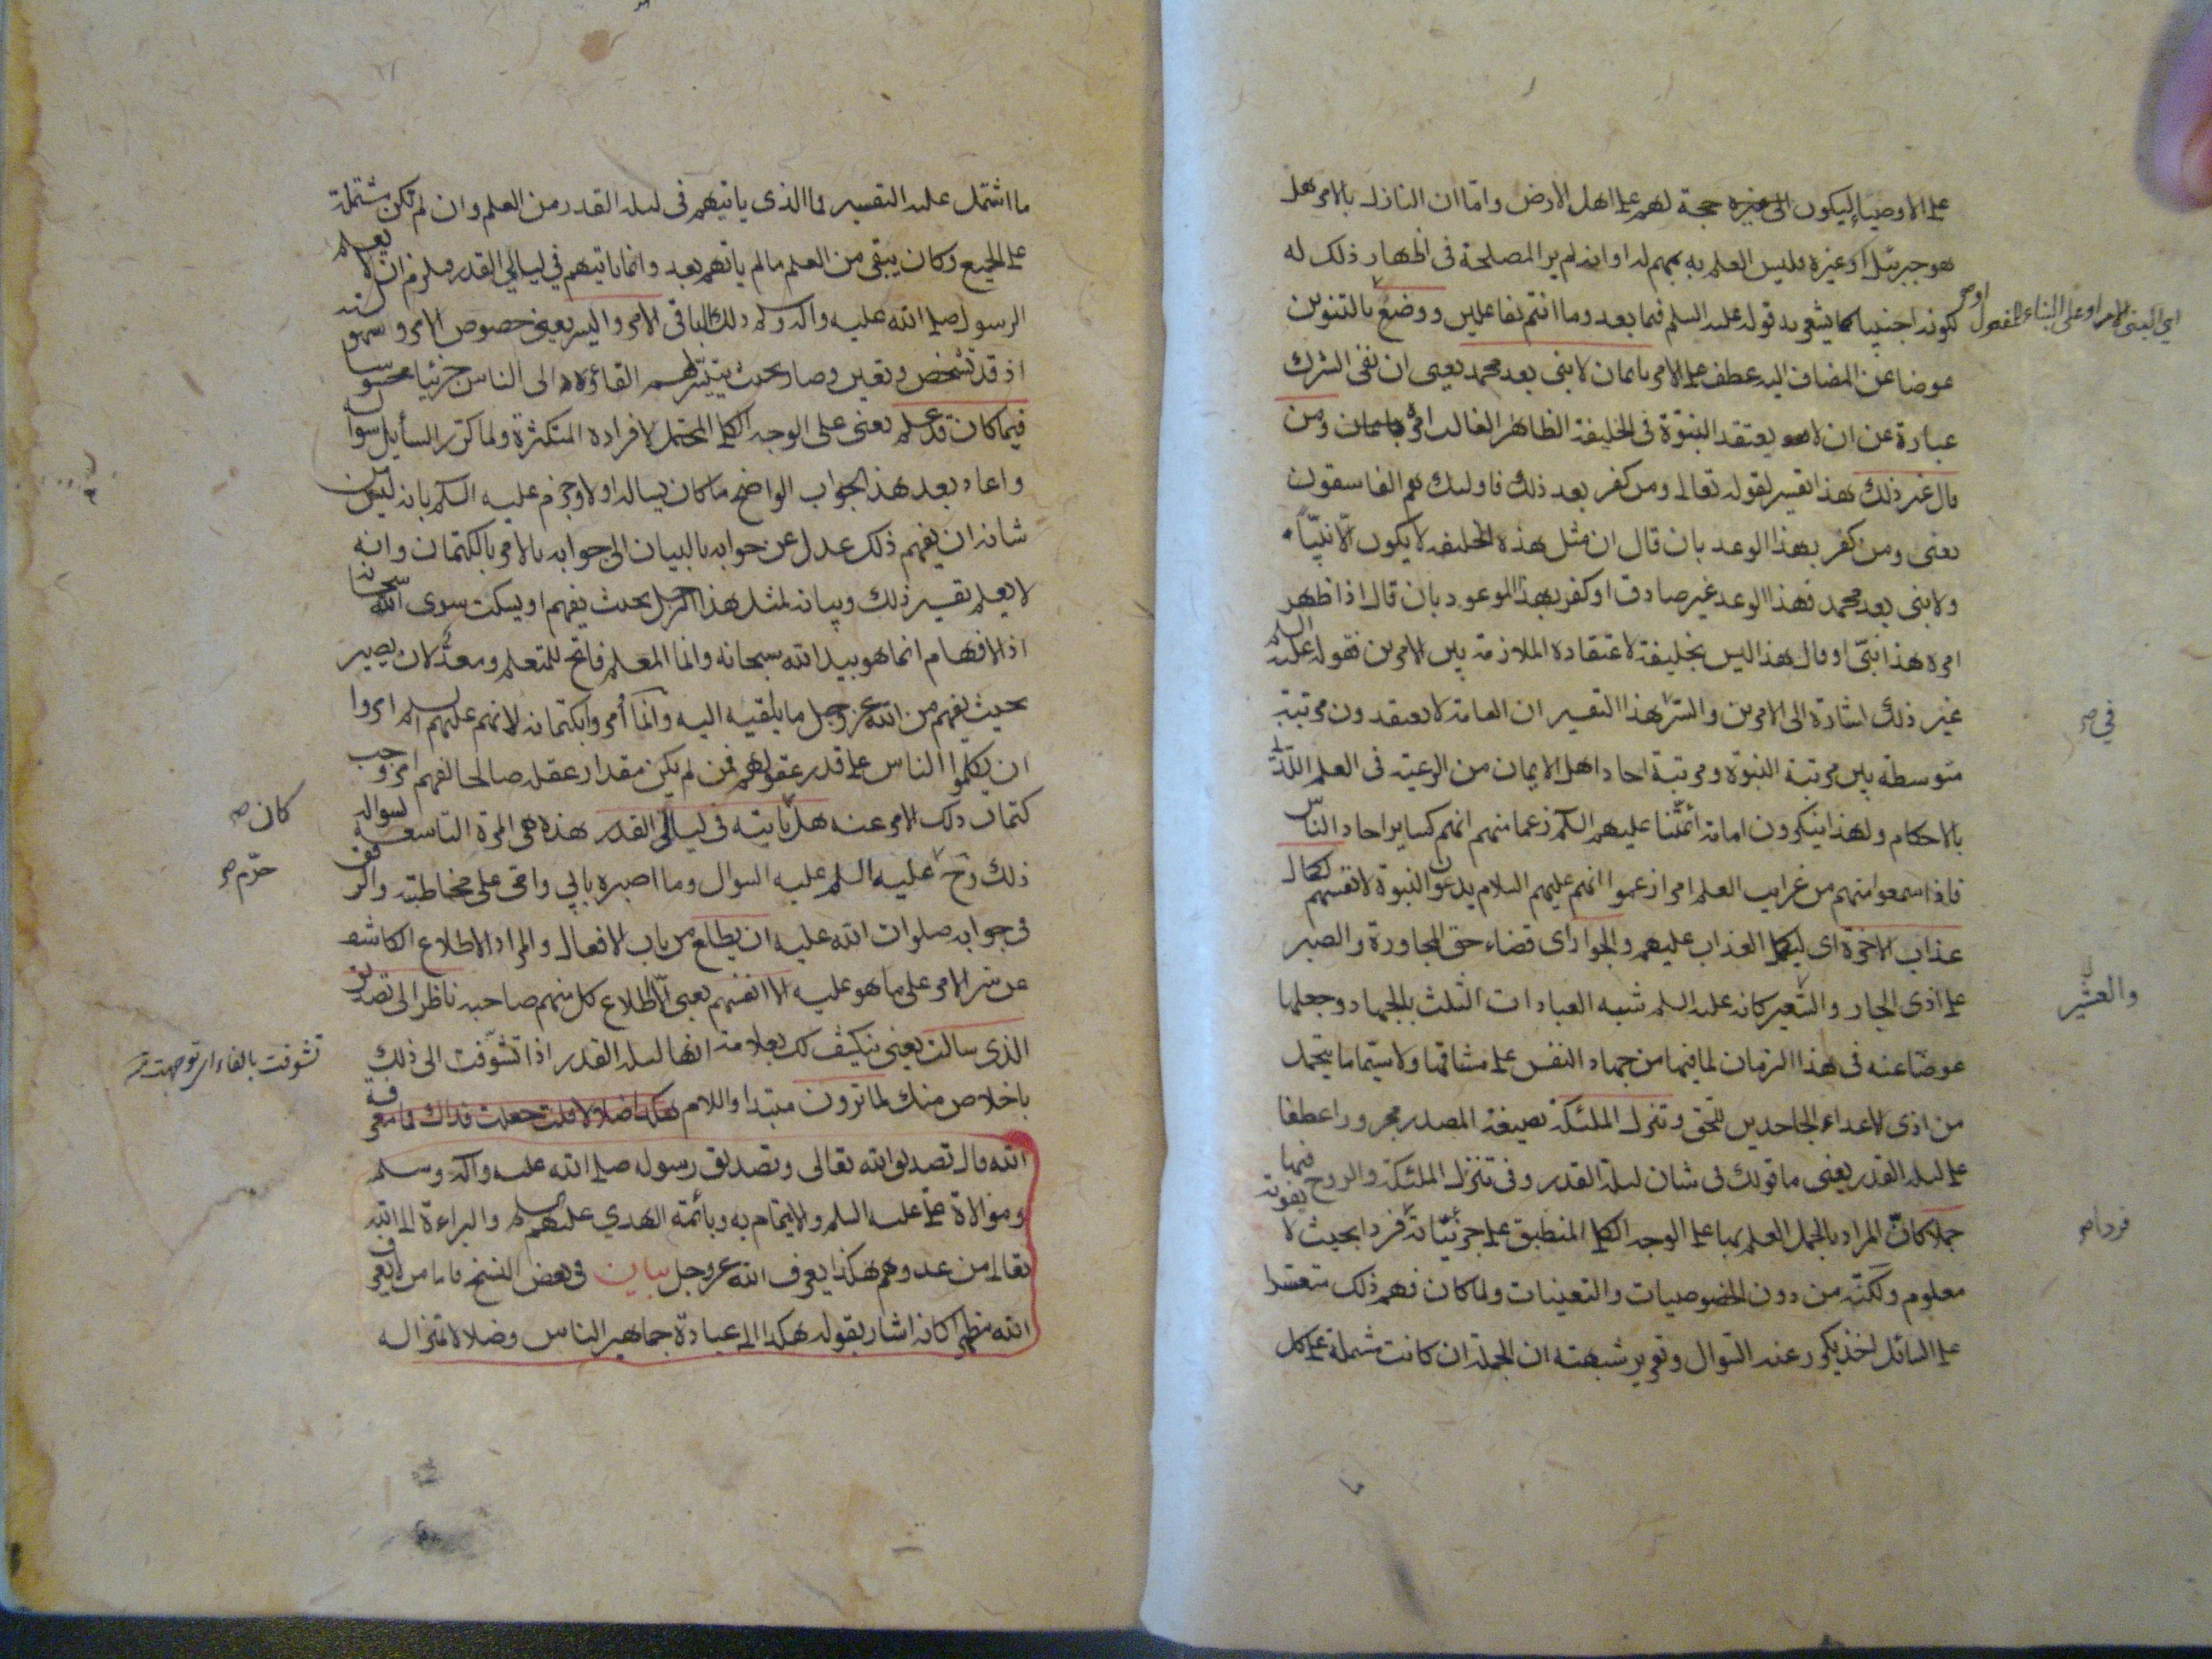 على الاوصياء ليكون الى غيره حجة لهم على اهل الارض واما ان النازل بالامر هل
هو جبرئيل او غيره فليس العلم به بمهم له او انه لم ير المصلحة في اظهار ذلك له
لكونه اجنبيا كما يشعر به قوله عليه السلم فيما بعد وما انتم بفاعلين ووضع بالتنوين
عوضا عن المضاف اليه عطف على الامر بايمان لا نبي بعد محمد يعني ان نفي الشرك
عبارة عن ان لا يعتقد النبوة في الخليفة الظاهر الغالب امره ومن
قال غير ذلك هذا تفسير لقوله تعالى ومن كفر بعد ذلك فاولئك هم الفاسقون
يعنى ومن كفر بهذا الوعد بان قال ان مثل هذه الخليفه لا يكون الّا نبيّاً
ولا نبى بعد محمد فهذا الوعد غير صادق او كفر بهذا الموعود بان قال اذا ظهر
امره هذا نبىّ او قال هذا ليس بخليفة لاعتقاده الملازمة بين الامرين فقوله عليه السلم
غير ذلك اشارة الى الامرين والسرّ بهذا التفسير ان العامة لا يعتقدون مرتبة
متوسطة بين مرتبة النبوة ومرتبة احاد اهل الايمان من الرعية فى العلم اللدنى
بالاحكام ولهذا ينكرون امامة ائمّتنا عليهم السلم زعما منهم انهم كساير احاد الناس
فاذا سمعوا منهم من غرايب العلم امرا زعموا انهم عليهم السلام يدعون النبوة لانفسهم لكمال
عذاب الاخرة اى ليكمل العذاب عليهم والجوار اى قضاء حق المجاورة والصبر
على اذى الجار والتعبير كانه عليه السلم شبه العبادات الثلث بالجهاد وجعلها
عوضا عنه فى هذا الزمان لما فيها من جهاد النفس على مشاقها ولا سيّما ما يتحمل
من اذى الاعداء الجاحدين للحق وتنزل الملئكة بصيغة المصدر مجرورا عطفا
على ليلة القدر يعنى ما قولك فى شان ليلة القدر وفى تنزل الملئكة والروح فيها
جملا كان المراد بالجمل العلم بها على الوجه الكلى المنطبق على جزئيّاته فردا بحيث لا يفوته
معلوم ولكنّه من دون الخصوصيات والتعينات ولما كان فهم ذلك متعسّرا
على السائل اخذ يكرر عنه السوال وتقرير شبهته ان الجملة ان كانت مشتملة على كل
اى المبنى للامر او على البناء للمفعول
فى صح
والعشير
فردا صح
ما اشتمل عليه التفسير فما الذى ياتيهم فى ليلة القدر من العلم وان لم تكن مشتملة
على الجميع وكان يبقى من العلم ما لم ياتهم بعد وانما ياتيهم في ليالي القدر فيلزم ان لا يعلم
الرسول صلى الله عليه واله وسلم ذلك الباقى الامر واليسر يعنى خصوص الامر وسهولته
اذ قد تشخص وتعين وصار بحيث يتيسر لهم القاؤه الى الناس جزئيا محسوسا
فيما كان قد علم يعنى على الوجه الكلى المحتمل لافراده المتكثرة ولما كرّر السائل سواله
واعاد بعد هذا الجواب الواضح ما كان يساله اولا وجزم عليه السلم بانه ليس من
شانه ان يفهم ذلك عدل عن جوابه بالبيان الى جوابه بالامر بالكتمان وانه
لا يعلم تفسير ذلك وبيانه لمثل هذا الرجل بحيث يفهم او يسكت سوى الله سبحانه
اذ الافهام انما هو بيد الله سبحانه وانما المعلم فاتح للمتعلم ومعدّ لان يصير
بحيث يفهم من الله عز وجل ما يلقيه اليه وانما أمروا بكتمانه لانهم عليهم السلم امروا
ان يكلّموا الناس على قدر عقولهم فمن لم يكن مقدار عقله صالحا لفهم امر وجب
كتمان ذلك الامر عنه هل ياتيه فى ليالى القدر هذه هى المرة التاسعة لسواله
ذلك عليه السلم عليه السوال وما اصبره بابي وامى على مخاطبته والرفق
فى جوابه صلوات الله عليه ان يطلع من باب الافعال والمراد الاطلاع الكاشف
عن سر الامر على ما هو عليه الا انفسهم يعنى الا اطلاع كل منهم صاحبه ناظر الى تصديق
الذى سالت يعنى ينكشف لك بعلامة انها ليلة القدر اذا تشوّفت الى ذلك
باخلاص منك لما ترون مبتدا واللام هكذا ضلالا قلت جعلت فداك فما معرفة
الله قال تصديق الله تعالى وتصديق رسوله صلى الله عليه وآله وسلم
وموالاة على عليه السلم والايتمام به وبائمة الهدي عليهم السلم والبراءة الى الله
تعالى من عدوهم هكذا يعرف الله عز وجل بيان فى بعض النسخ فاما من لا يعرف
الله كانه اشار بقوله هكذا الى عبادة جماهير الناس وضلالا تمييز له
كان صح
حرّم صح
تشوفت بالفاء اى توجهت